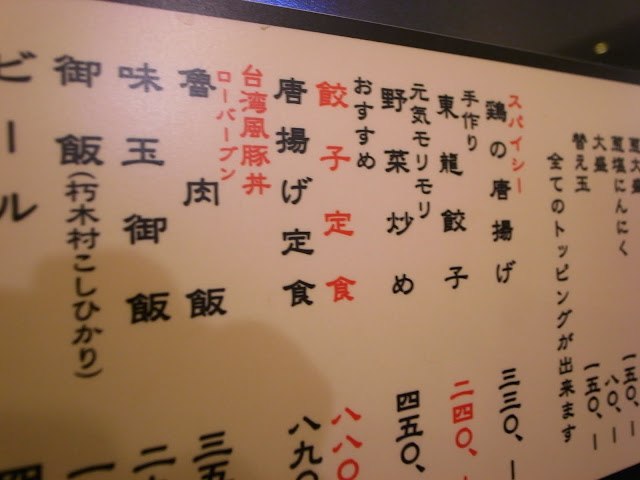 大盛
葱塩にんにく 八〇、―
大盛
替え玉 一五〇、―
全てのトッピングが出来ます
スパイシー
鶏の唐揚げ 三三〇、―
手作り
東龍餃子 二四〇、
元気モリモリ
野菜炒め 四五〇、
おすすめ
餃子定食 八八〇
唐揚げ定食 八九〇
台湾風豚丼
ローバープン
魯肉飯 三五
味玉御飯 二
御飯(朽木村こしひかり)
ビール 四